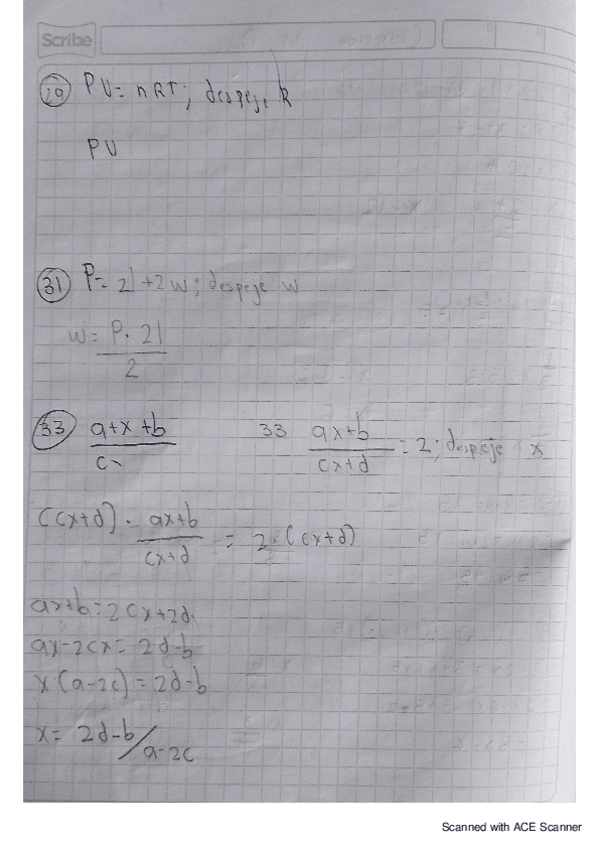 Scribe
29 PV = nRT; despeje R
PV
31 P = 2l + 2w; despeje w
w = P - 2l
2
33 a+x+b
c
33 ax+b / cx+d = 2; despeje x
(cx+d) · ax+b / cx+d = 2 · (cx+d)
ax+b = 2cx+2d
ax-2cx = 2d-b
x(a-2c) = 2d-b
x = 2d-b/a-2c
Scanned with ACE Scanner